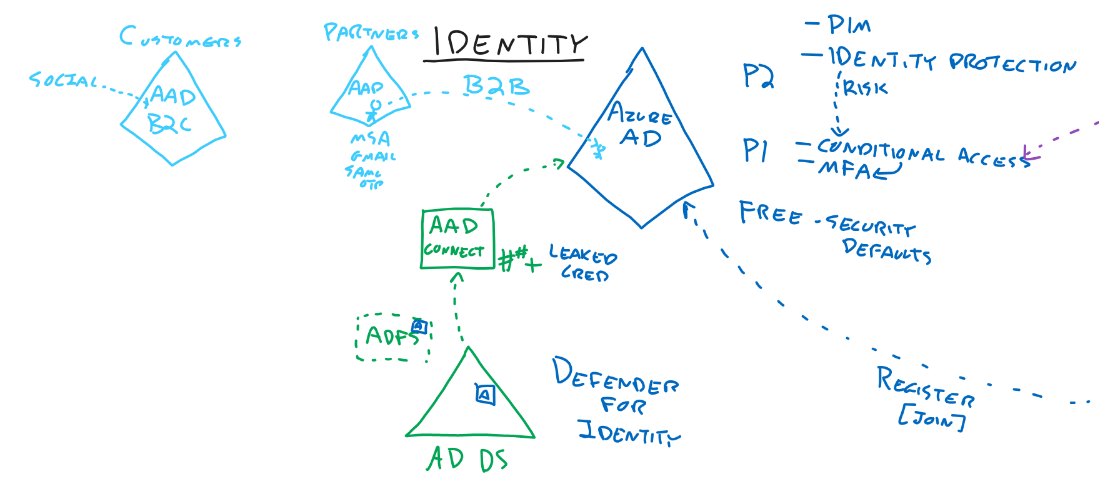 IDENTITY
CUSTOMERS
SOCIAL
AAD
B2C
PARTNERS
AAD
MSA
GMAIL
SAML
OTP
B2B
AZURE
AD
- PIM
P2
- IDENTITY PROTECTION
RISK
P1
- CONDITIONAL ACCESS
- MFA
FREE - SECURITY
DEFAULTS
AAD
CONNECT
##+
LEAKED
CRED
ADFS
A
A
AD DS
DEFENDER
FOR
IDENTITY
REGISTER
[JOIN]